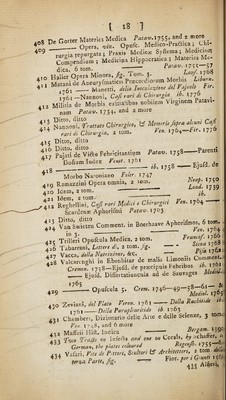 [ 18 ]
408 De Gorter Materies Medica Patav. 1755, and 2 more
409 Opera, viz. Opusc. Medico-Practica; Chi-
rurgia repurgata; Praxis Medicæ Systema; Medicinæ
Compendium; Medicina Hippocratica; Materies Me-
dica. 6 tom. Patav. 1755—57
410 Haller Opera Minora, fig. Tom. 3. Lauf. 1768
411 Matani de Aneurismaticis Præcordiorum Morbis Liburn.
1761 — Manetti, della Inoculazione del Vajuolo Fir.
1761—Nannoni, Casi rari di Chirurgia ib. 1776
412 Militia de Morbis exitialibus nobilem Virginem Patavi-
nam Patav. 1758
413 Ditto, ditto
414 Nannoni, Trattato Chirurgico, & Memorie sopra alcuni Casi
rari di Chirurgia, 2 tom. Ven. 1764—Fir. 1776
415 Ditto, ditto
416 Ditto, ditto
417 Pujati de Victu Febricitantium Patav. 1758—Parenti
Dosium Index Venet. 1761
418 ib. 1758 — Ejusd. de
Morbo Naroniano Feltr. 1747
419 Ramazzini Opera omnia, 2 tom. Neap. 1750
420 Idem, 2 tom. Lond. 1739
421 Idem, 2 tom. ib.
422 Reghellini, Casi rari Medici e Chirurgici Ven. 1764 —
Scardonæ Aphorismi Patav. 1703
423 Ditto, ditto
424 Van Swieten Comment. in Boerhaave Aphorismos, 6 tom.
in 3. Ven. 1764
425 Trilleri Opuscula Medica, 2 tom. Francof. 1766
426 Tabarrani, Lettere di, 2 tom. fig. Siena 1768
427 Vacca, della Nutrizione, &c. Pisa
428 Valcarenghi in Ebenbitar de malis Limoniis Comment.
Cremon. 1758—Ejusd. de præcipuis Febribus ib. 1761
Ejusd. Dissertatiuncula ad de Sauvages Mediol.
429 — Opuscula 5. Crem. 1746—49—58—61— &
Mediol.
430 Zeviani, del Flato Veron. 1761— Della Rachitide ib.
1761— Della Parapleuritide ib. 1763
431 Chambers, Dizionario delle Arte e delle Scienze, 3 tom.
Ven. 1748, and 6 more
432 Maffeii Hist. Indica Bergam.
433 Two Tracts on Insects and one on Corals, by
German, the plates coloured Regensb. 1755
434 Vasari, Vite de Pittori, Scultori & Architettori, 2 tom
terza Parte, fig. Fior. per i Giunti